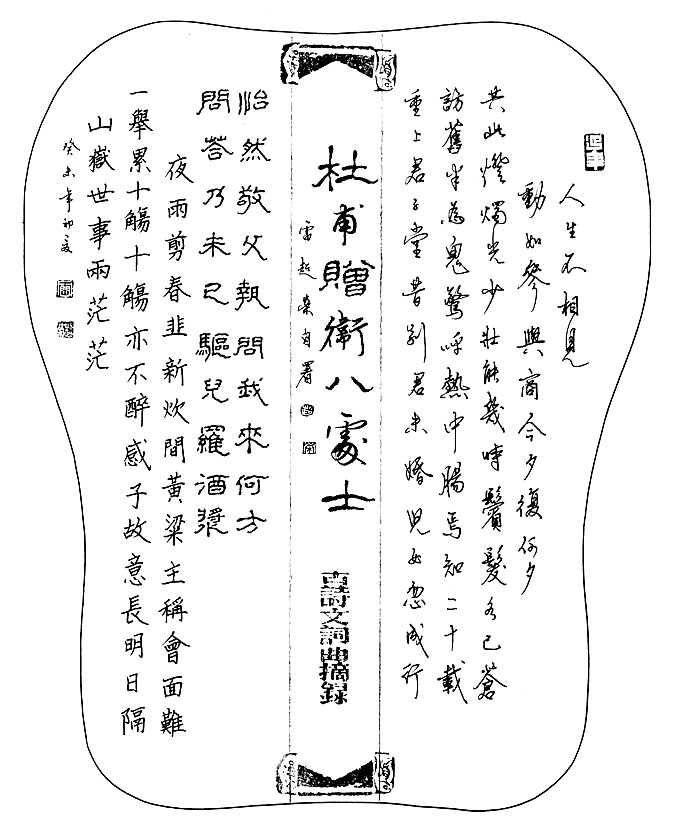 人生不相見
動如參與商今夕復何夕
共此燈燭光少壯能幾時鬢髮各已蒼
訪舊半為鬼驚呼熱中腸焉知二十載
重上君子堂昔別君未婚兒女忽成行
杜甫贈衛八處士
詩文詞典摘錄
雷超榮自署
怡然敬父執問我來何方
問荅乃未已驅兒羅酒漿
夜雨剪春韭新炊間黃粱主稱會面難
一舉累十觴十觴亦不醉感子故意長明日隔
山嶽世事兩茫茫
癸未年初夏